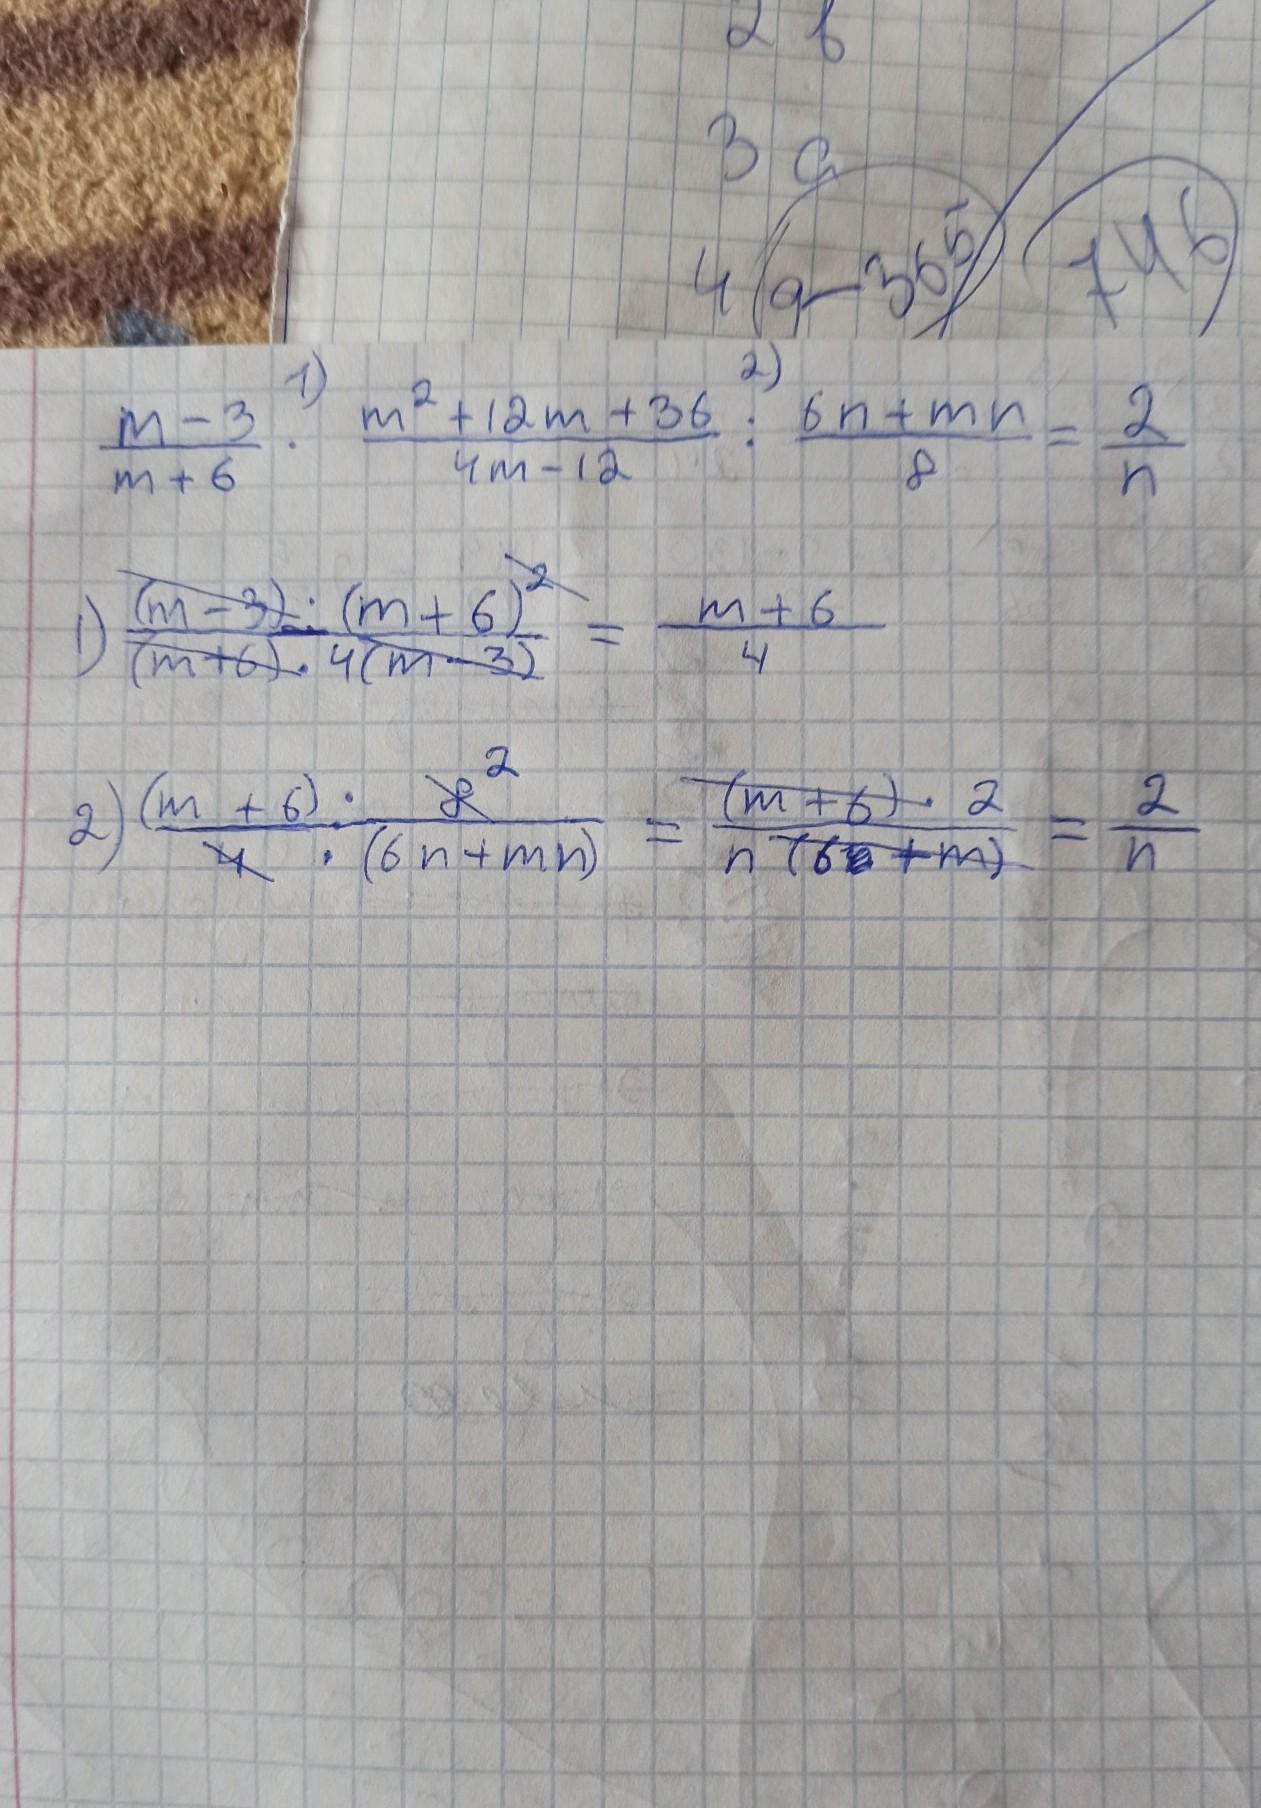 2 b
3 a
4 (a-3b5) (74b)
1) 2)
m-3/m+6 · m²+12m+36/4m-12 : 6n+mn/8 = 2/n
1) (m-3)·(m+6)²/(m+6)·4(m-3) = m+6/4
2) (m+6)·8 2/4·(6n+mn) = (m+6)·2/n(6+m) = 2/n